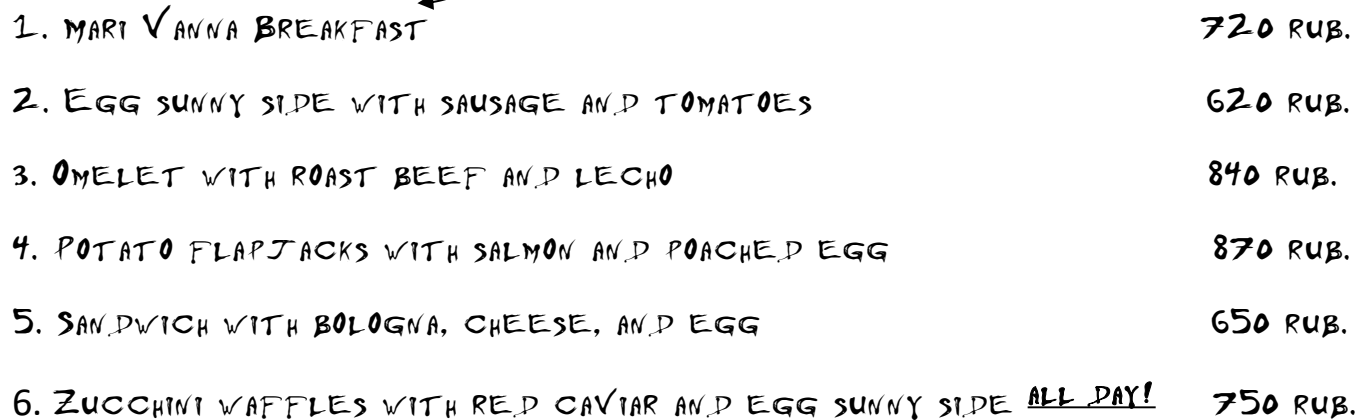 1. Mari Vanna Breakfast 720 rub.
2. Egg sunny side with sausage and tomatoes 620 rub.
3. Omelet with roast beef and lecho 840 rub.
4. Potato flapjacks with salmon and poached egg 870 rub.
5. Sandwich with bologna, cheese, and egg 650 rub.
6. Zucchini waffles with red caviar and egg sunny side ALL DAY! 750 rub.